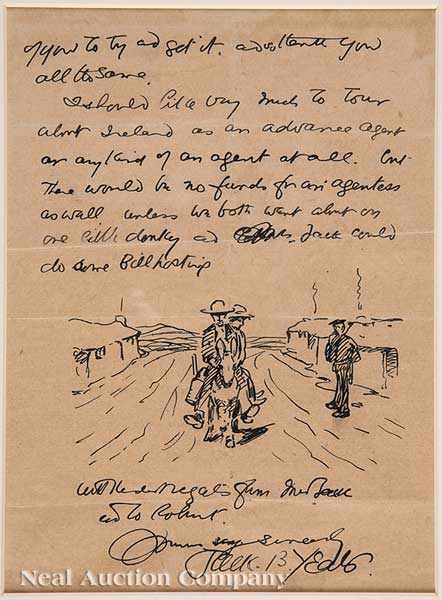 of you to try ad get it. ad thank you
all the same.
I should like very much to tour
about Ireland as an advance agent
or any kind of an agent at all. but
there would be no funds for an agentess
as well unless we both went about on
one little donkey ad Jack could
do some Billposting
with kindest regards from Mrs Jack
ad to Robert.
Yours very sincerely
Jack. B. Yeats.
Neal Auction Company